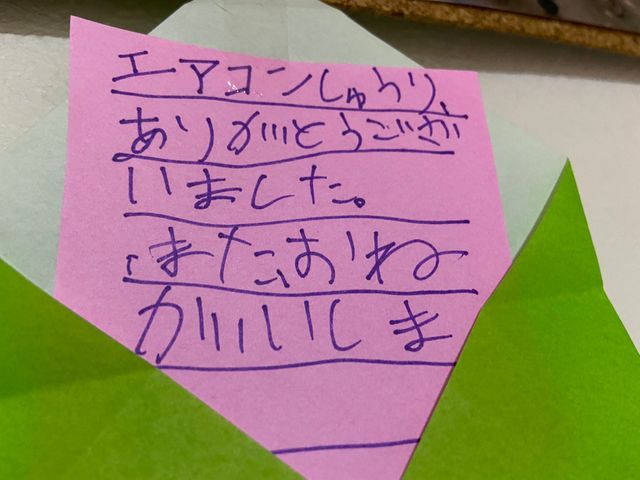 エアコンしゅうり、
ありがとうござ
いました。
またおね
がいいしま